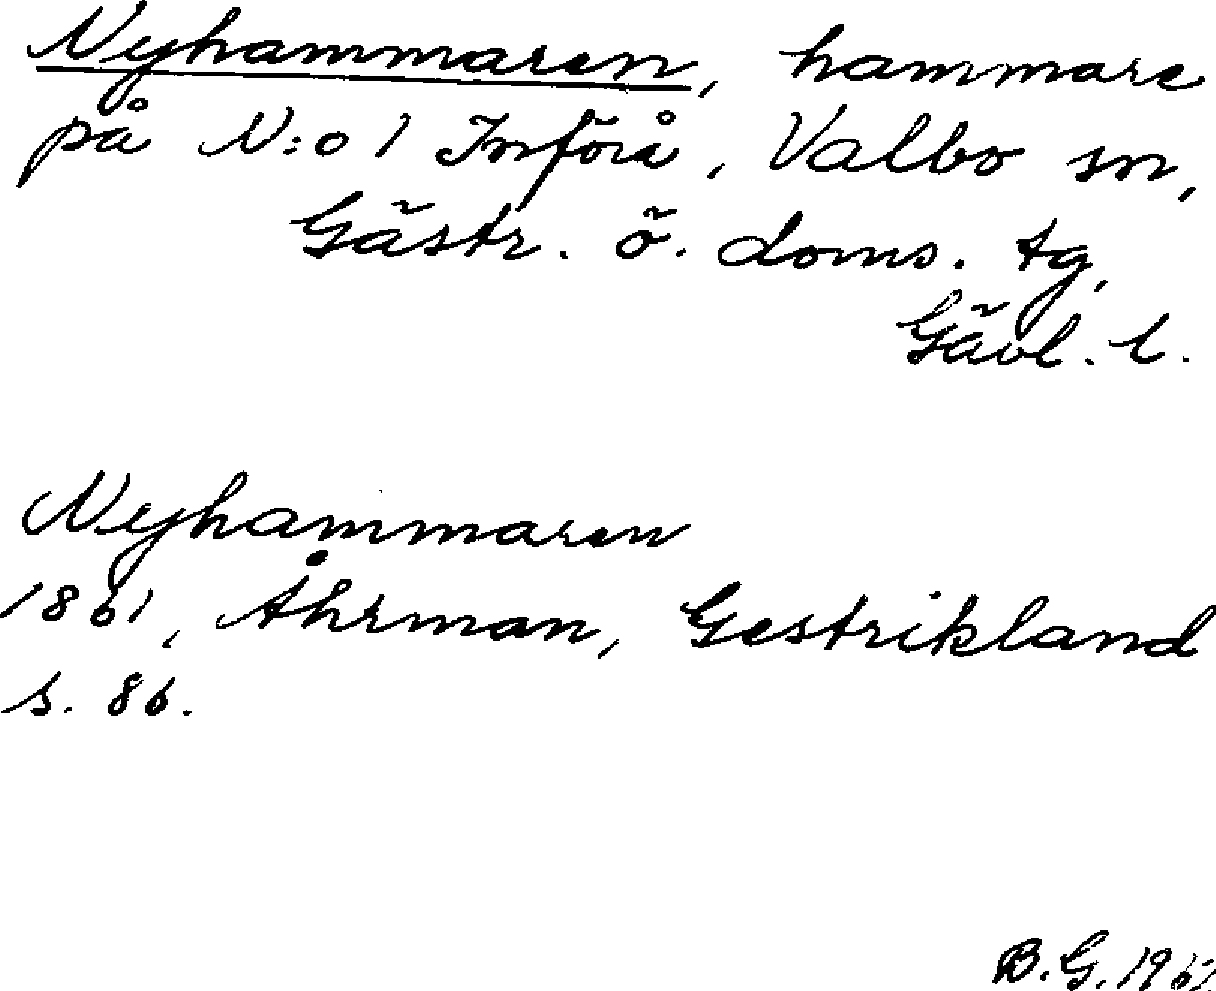 Nyhammaren, hammare
på N:o 1 Införå, Valbo sn,
Gästr. ö. doms. tg,
Gävl. l.
Nyhammaren
1861, Åhrman, Gestrikland
s. 86.
B.G. 1962